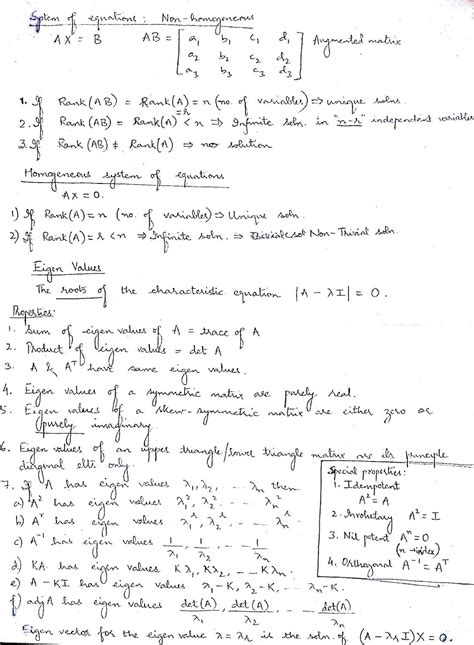 System of equations : Non-homogeneous
AX = B    AB = [ a₁ b₁ c₁ d₁ ] Augmented matrix
a₂ b₂ c₂ d₂
a₃ b₃ c₃ d₃
1. If Rank(AB) = Rank(A) = n (no. of variables) ⇒ unique solns.
2. If Rank(AB) = Rank(A) = r < n ⇒ Infinite soln. in "n-r" independent variables
3. If Rank(AB) ≠ Rank(A) ⇒ no solution
Homogeneous system of equations
AX = 0.
1) If Rank(A) = n (no. of variables) ⇒ Unique soln.
2) If Rank(A) = r < n ⇒ Infinite soln. ⇒ Non-Trivial soln
Eigen Values
The roots of the characteristic equation |A - λI| = 0.
Properties:
1. Sum of eigen values of A = trace of A
2. Product of eigen values = det A
3. A & Aᵀ have same eigen values.
4. Eigen values of a symmetric matrix are purely real.
5. Eigen values of a skew-symmetric matrix are either zero or
purely imaginary
6. Eigen values of an upper triangle/lower triangle matrix are its principle
diagonal elts only.
7. If A has eigen values λ₁, λ₂, ... λn then
a) A² has eigen values λ₁², λ₂², ... λn²
b) Aʳ has eigen values λ₁ʳ, λ₂ʳ, ... λnʳ
c) A⁻¹ has eigen values 1/λ₁, 1/λ₂, ... 1/λn
d) KA has eigen values Kλ₁, Kλ₂, ... Kλn.
e) A - KI has eigen values λ₁-K, λ₂-K, ... λn-K.
f) adjA has eigen values det(A)/λ₁, det(A)/λ₂, ... det(A)/λn
Eigen vector for the eigen value λ = λr is the soln. of (A - λrI)X = 0.
Special properties:
1. Idempotent
A² = A
2. Involutary A² = I
3. Nil potent Aⁿ = 0
(n → index)
4. Orthogonal A⁻¹ = Aᵀ